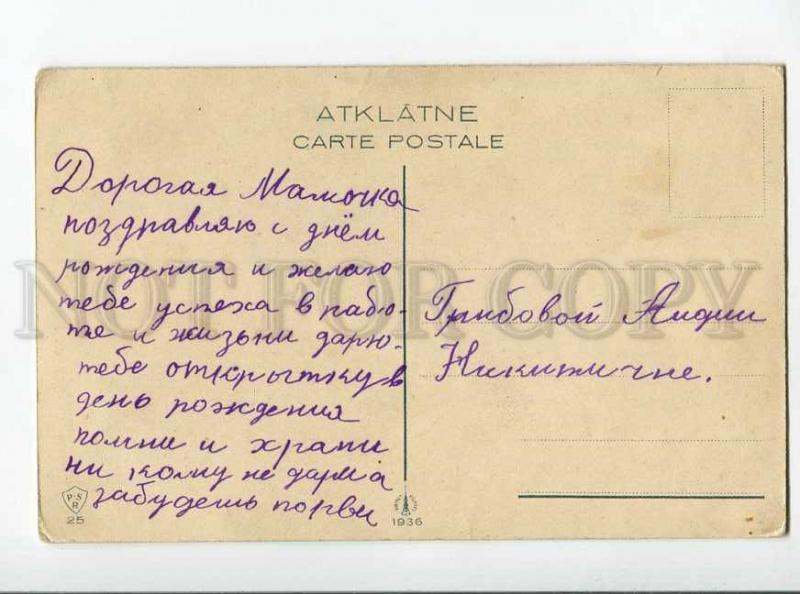 ATKLĀTNE
CARTE POSTALE
Дорогая Мамочка
поздравляю с днём
рождения и желаю
тебе успеха в рабо-
те и жизьни дарю-
тебе открыттку в
день рождения
помни и храни
ни кому не дари а
забудешь порви
Грибовой Лидии
Никитичне.
PSR
25
1936
NOT FOR COPY